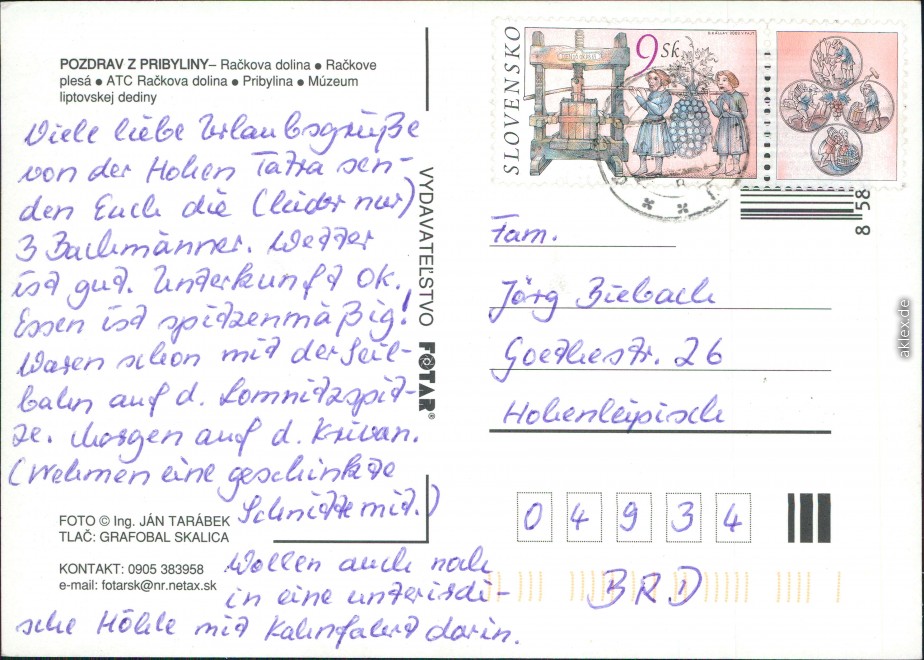 POZDRAV Z PRIBYLINY – Račkova dolina ● Račkove
plesá ● ATC Račkova dolina ● Pribylina ● Múzeum
liptovskej dediny
Viele liebe Urlaubsgrüße
von der Hohen Tatra sen-
den Euch die (leider nur)
3 Bachmänner. Wetter
ist gut. Unterkunft OK.
Essen ist spitzenmäßig!
Waren schon mit der Seil-
bahn auf d. Lomnitzspit-
ze. Morgen auf d. Krivan.
(Nehmen eine geschinkte
Schnitte mit.)
Wollen auch noch
in eine unterirdi-
sche Höhle mit Kahnfahrt darin.
FOTO © Ing. JÁN TARÁBEK
TLAČ: GRAFOBAL SKALICA
KONTAKT: 0905 383958
e-mail: fotarsk@nr.netax.sk
VYDAVATEĽSTVO FOTAR®
SLOVENSKO
9 Sk
8 58
Fam.
Jörg Biebach
Goethestr. 26
Hohenleipisch
04934
BRD
aklex.de